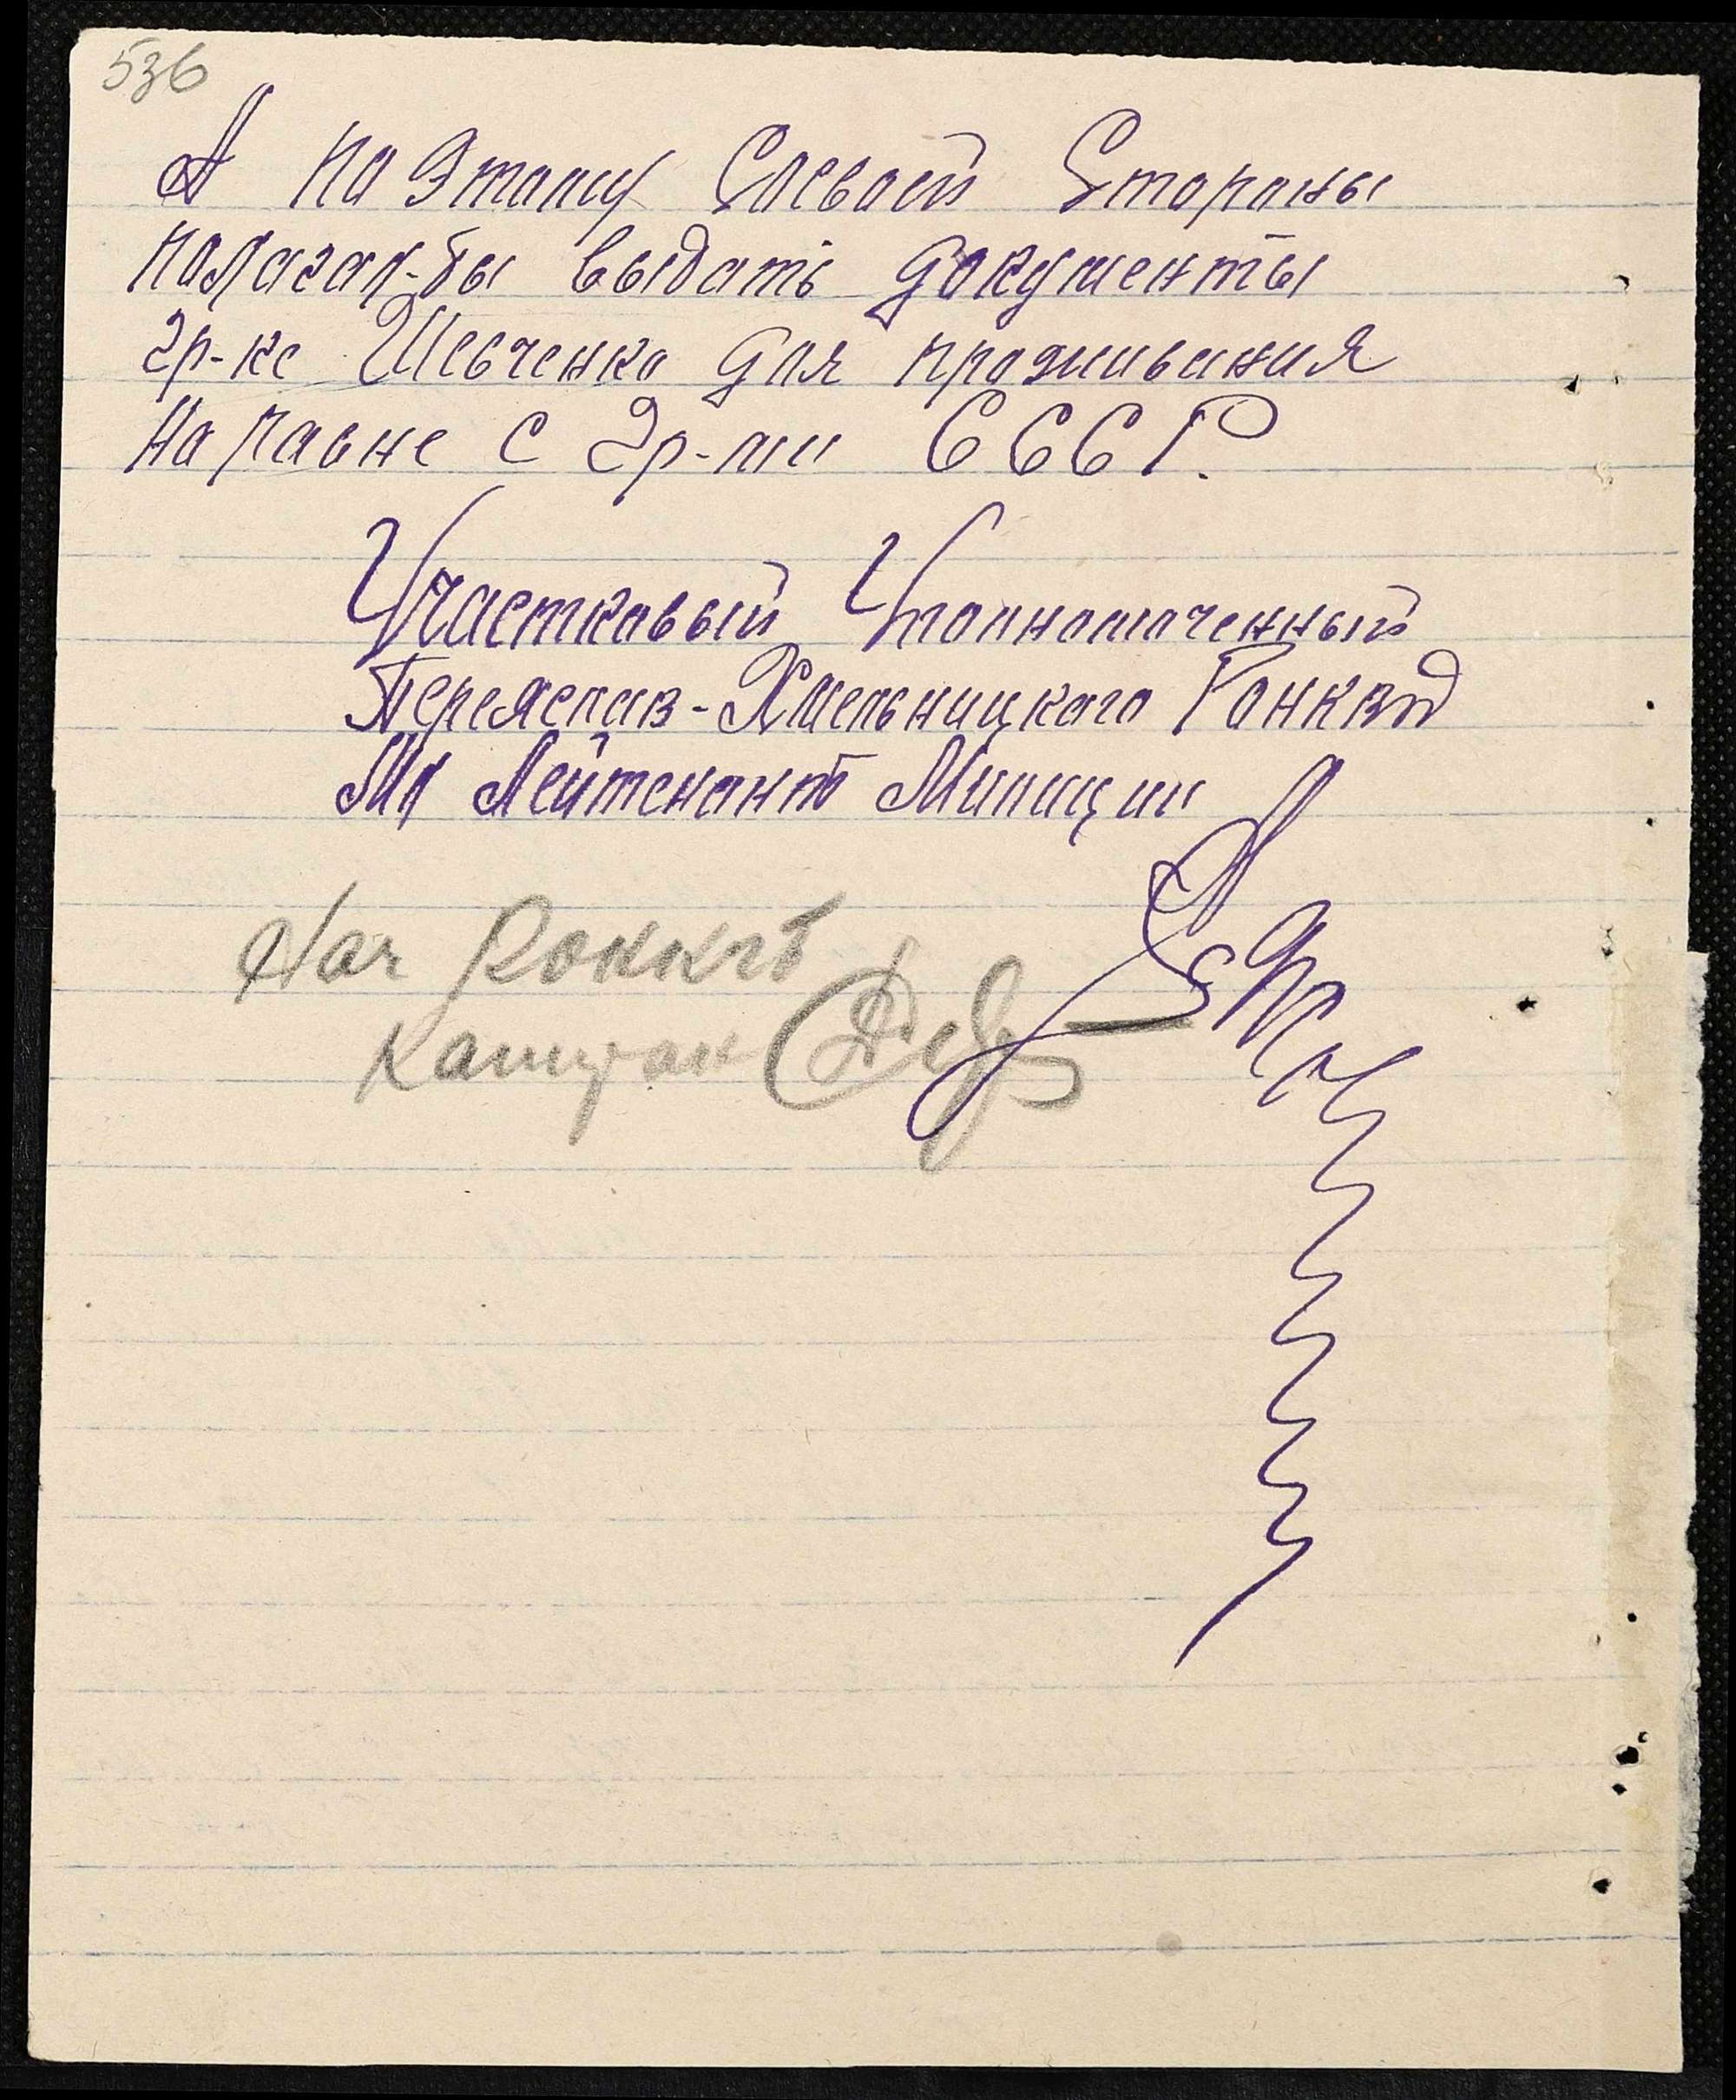 536
А по Этому С своей Стороны
полагал-бы выдать документы
гр-ке Шевченко для проживания
На равне с гр-ми СССР.
Участковый Уполномоченный
Переяслав-Хмельницкого РОНКВД
Мл Лейтенант Милиции
Нач